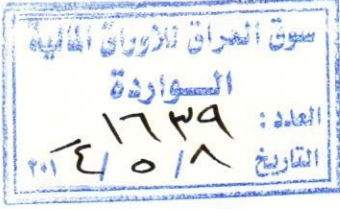 سوق العراق للاوراق المالية
الــواردة
العدد : ١٦٣٩
التاريخ ٨ / ٥ / ٢٠١٤